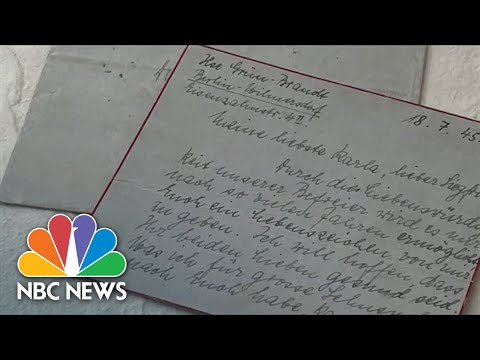 Ilse Grün-Brandt
Berlin-Wilmersdorf
Eisenzahnstr. 4 II
18.7.45
Meine liebste Karla, lieber Siegfr
Durch die Liebenswürdig
keit unserer Befreier wird es mir
nach so vielen Jahren ermöglicht
Euch ein Lebenszeichen von mir
zu geben. Ich will hoffen, dass
Ihr beiden Lieben gesund seid.
Was ich für grosse Sehnsu
nach Euch habe
NBC NEWS